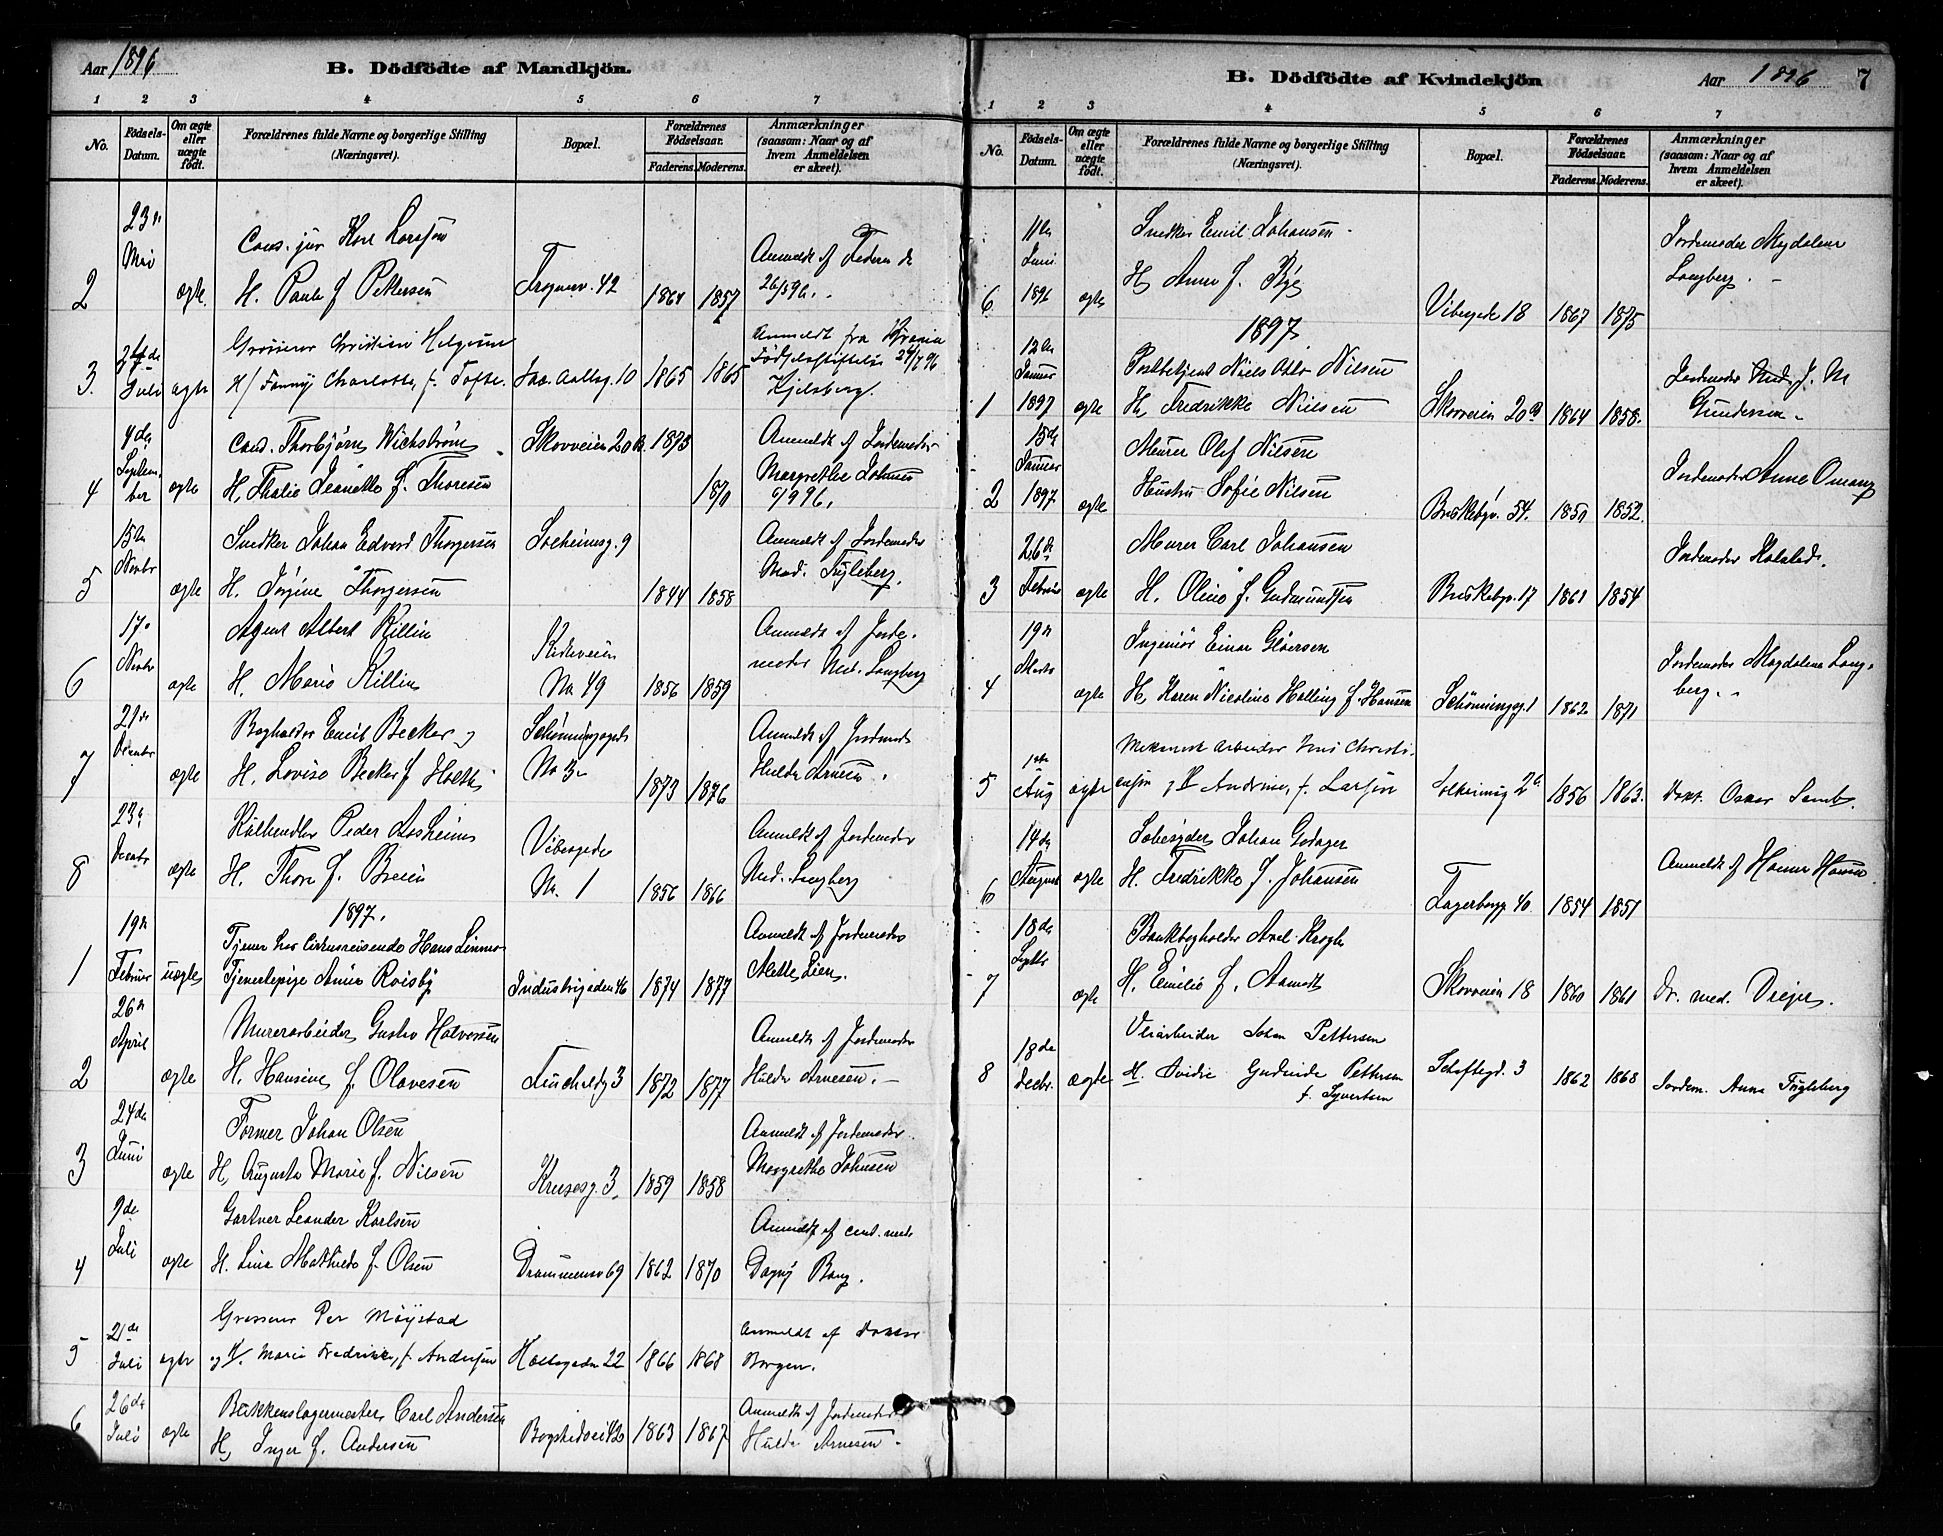 Aar 1896
B. Dödfödte af Mandkjön.
1 2 3 4 5 6 7
No.
Födsels-Datum.
Om ægte eller uægte födt.
Forældrenes fulde Navne og borgerlige Stilling (Næringsvei).
Bopæl.
Forældrenes Födselsaar.
Faderens. Moderens.
Anmærkninger (saasom: Naar og af hvem Anmeldelsen er skeet).
23de Mai
Cand. jur Karl Larssen
Anmeldt af Faderen
2 ægte H. Paula f Pettersen Frognerv. 42 1864 1857 26/5 96.
Grosserer Christian Helgesen
Anmeldt fra Kr.ania
Fødselsstiftelse
3. Juli ægte H/ Fanny Charlotte, f. Tofte. Jac. Aallsg. 10 1865 1865
Kjelsberg.
4de Septem-ber
Cand. Thorbjörn Wichström Skovveien 20 B. 1873
Anmeldt af Jordemoder
4 ægte H. Thalie Jeanette f. Thoresen 1870
Margrethe Johnsen
6/9 96.
15de Novbr
Snedker Johan Edvard Thorgersen Solheimsg. 9
Anmeldt af Jordemoder
5 ægte H. Jörgine Thorgersen 1844 1858
Mad. Fugleberg.
17. Novbr
Agent Albert Killin
Anmeldt af Jorde-
moder Mad. Langberg
6 ægte H. Marie Killin Kirkeveien No 49 1856 1859
21de Decembr
Bogholder Emil Becker og
Schøningsgade
Anmeldt af Jordemoder
7 ægte H. Lovise Becker f Holth No 3 1873 1876
Hulda Arnesen.
23de Decembr
Kulhandler Peder Aasheim
Anmeldt af Jordemoder
8 ægte H. Thora f. Breien Vibesgade No. 1 1856 1866
Mad. Langberg
1897.
19de Februar
Tjener hos Cirkusreisende Hans Linmo
Anmeldt af Jordemoder
1 uægte Tjenestepige Anna Roisby Industrigaden 46 1874 1877
Alette Lien.
26de April
Murerarbeider Gustav Halvorsen
Anmeldt af Jordemoder
2 ægte H. Hansine f. Olavesen 3 1872 1877 Hulda Arnesen.
24de Juni
Former Johan Olsen
Anmeldt af Jordemoder
3 ægte H. Augusta Marie f. Nilsen Krusesg. 3 1859 1858
Margrethe Johnsen
9de Juli
Gartner Leander Karlsen
Anmeldt af cand. med.
4 ægte H. Lina Mathilde f. Olsen Drammensv 69 1862 1870
Dagny Bang.
21de Juli
Grosserer Per Möystad
Anmeldt af Doktor
5 ægte og H. Marie Fredrikke, f. Andersen Holtegaden 22 1866 1868
Borgen.
26de Juli
Blikkenslagermester Carl Andersen
Anmeldt af Jordemoder
6 ægte H. Inger f. Andersen Bogstadvei 42 1863 1867
Hulda Arnesen
B. Dödfödte af Kvindekjön
Aar 1896 7
1 2 3 4 5 6 7
No.
Födsels-Datum.
Om ægte eller uægte födt.
Forældrenes fulde Navne og borgerlige Stilling (Næringsvei).
Bopæl.
Forældrenes Födselsaar.
Faderens. Moderens.
Anmærkninger (saasom: Naar og af hvem Anmeldelsen er skeet).
11te Juni 1896
Snedker Emil Johansen
Jordemoder Magdalene
Langberg.
6 ægte H. Anna f. Bye Vibesgade 18 1867 1875
1897
12te Januar 1897
Postbetjent Niels Nilsen
Jordemoder J. M
Gundersen
1 ægte H. Fredrikke Nilsen Skovveien 20 B 1864 1858.
15de Januar 1897
Murer Olaf Nilsen
Jordemoder Anne Omang
2 ægte Hustru Sofie Nilsen Briskebyv. 54. 1851 1852.
26de
Murer Carl Johansen
Jordemoder
3 Februar ægte H. Oline f. Gudmundsen Briskebyv. 17 1861 1854
19de Marts
Ingeniör Einar Gløersen
Jordemoder Magdalene Lang-
berg.
4 ægte H. Karen Nicoline Halling f. Hansen Schönningsg. 1 1862 1871
1ste Aug
Mekanisk Arbeider Jens Christi-
5 ægte ensen og H Andrine, f. Larsen Solheimsg 2 1856 1863. Dokt. Oskar Lamb.
14de August
Johan Godager
Anmeldt af
6 ægte H. Fredrikke f. Johansen Fagerborgg 40. 1854 1851
18de Septbr
Bankbogholder Axel Krogh
7 ægte H. Emilie f. Aamodt Skovveien 18 1860 1861 Dr. med. Dreyer.
18de Decbr.
Veiarbeider Johan Pettersen
8 ægte H. Gudmunda Pettersen Schaftegd. 3 1862 1868 Jordem. Anna Fugleberg
f. Syvertsen